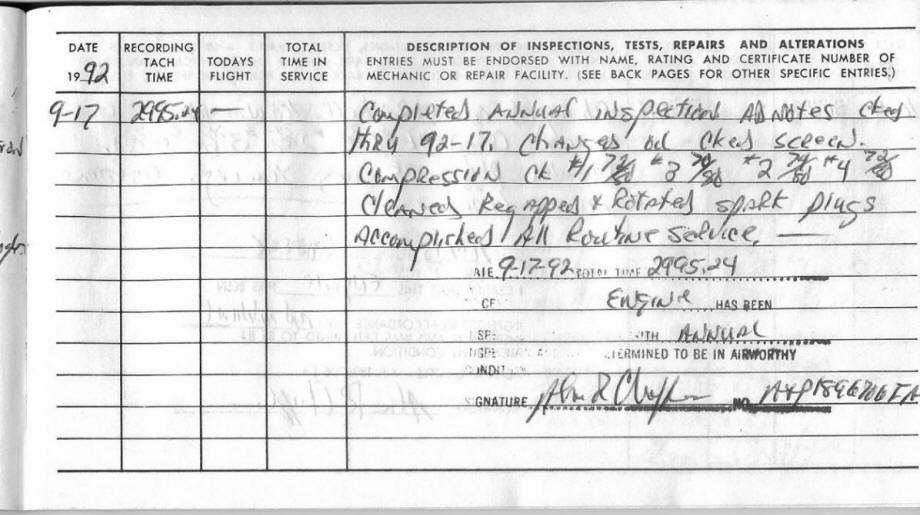 DATE RECORDING TACH TIME TODAYS FLIGHT TOTAL TIME IN SERVICE DESCRIPTION OF INSPECTIONS, TESTS, REPAIRS AND ALTERATIONS
ENTRIES MUST BE ENDORSED WITH NAME, RATING AND CERTIFICATE NUMBER OF
1992 MECHANIC OR REPAIR FACILITY. (SEE BACK PAGES FOR OTHER SPECIFIC ENTRIES.)
9-17 2995.24 — Completed Annual inspection AD notes cked
thru 92-17. Changed oil cked screen.
Compression ck #1 72/80 #3 70/80 #2 74/80 #4 72/80
Cleaned Regapped & Rotated spark plugs
Accomplished All Routine Service. —
9-17-92 TOTAL TIME 2995.24
ENGINE HAS BEEN
ANNUAL
TERMINED TO BE IN AIRWORTHY
SIGNATURE NO.